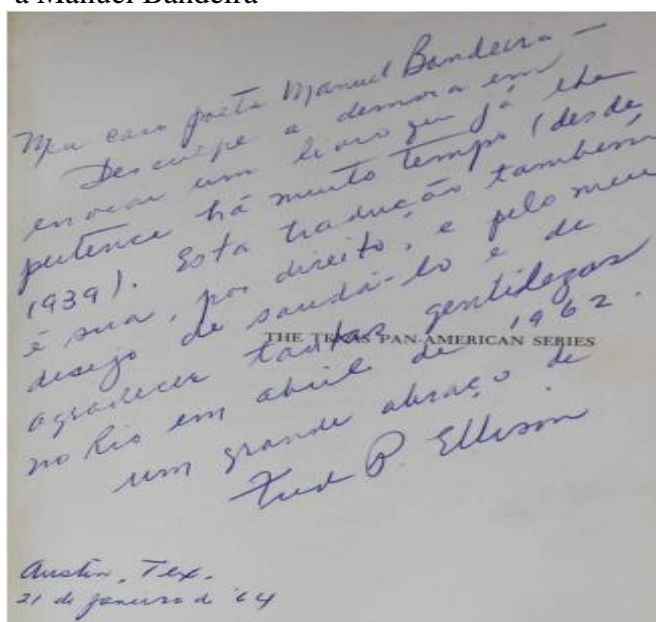 a Manuel Bandeira
Meu caro poeta Manuel Bandeira —
Desculpe a demora em
enviar um livro que já lhe
pertence há muito tempo (desde
1939). Esta tradução também
é sua, por direito, e pelo meu
desejo de saudá-lo e de
agradecer tantas gentilezas
THE TEXAS PAN-AMERICAN SERIES
no Rio em abril de 1962.
um grande abraço de
Fred P. Ellison
Austin, Tex.
21 de janeiro de '64